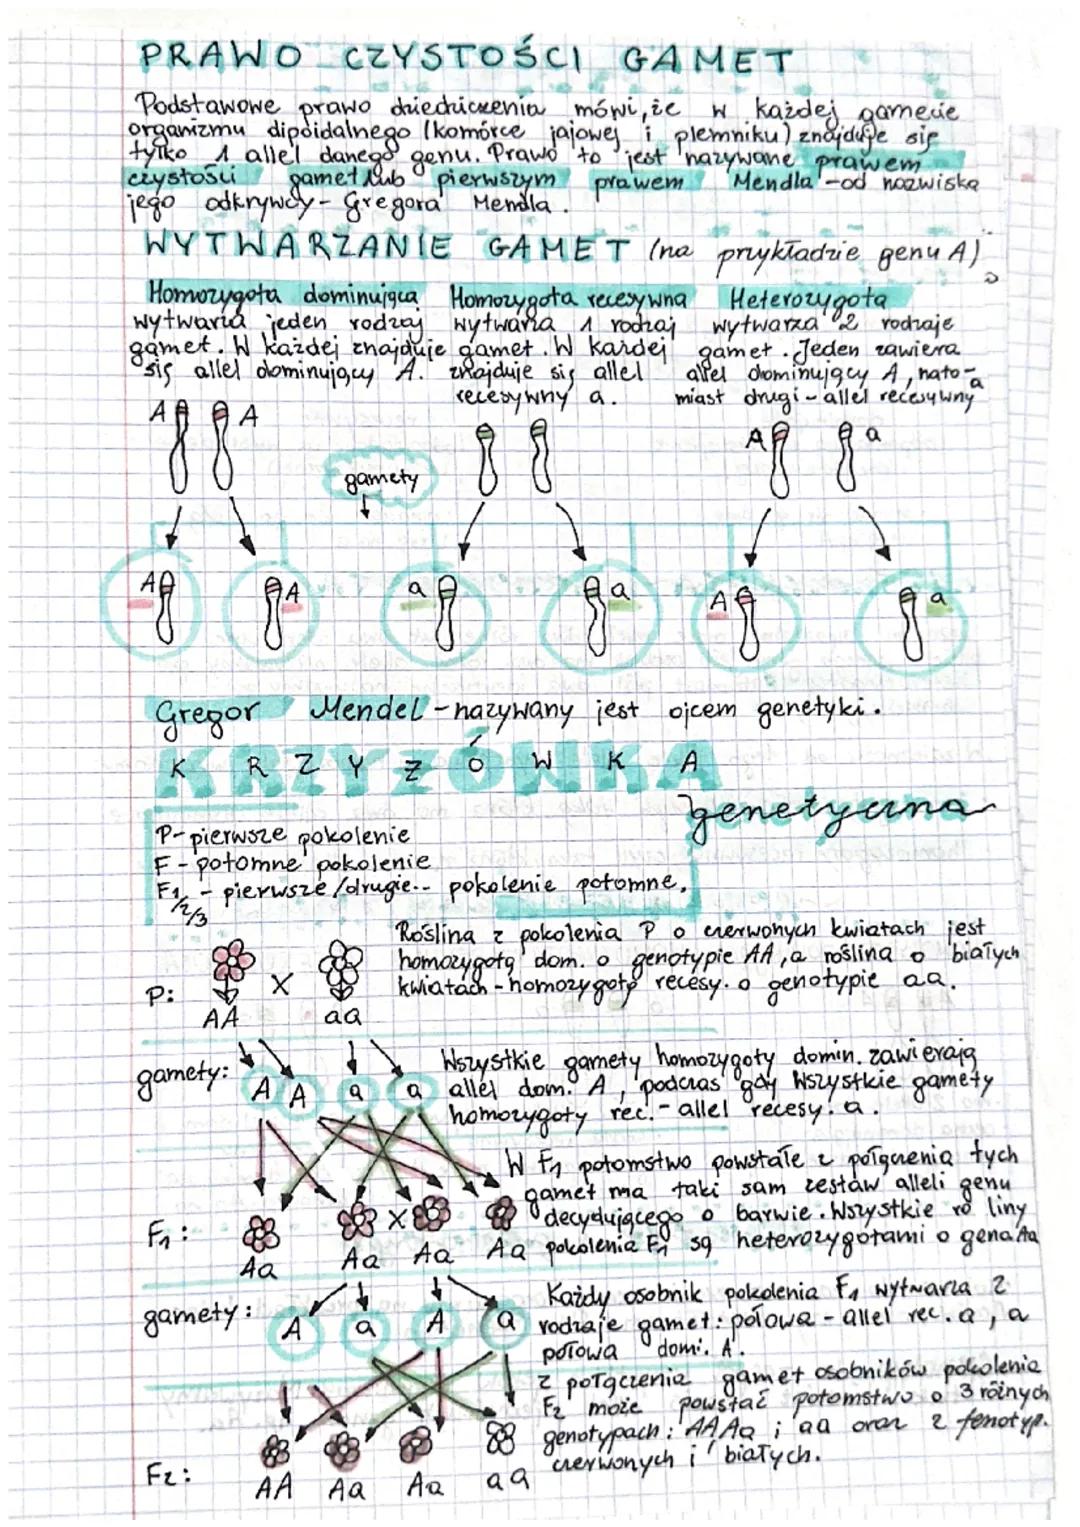 PRAWO CZYSTOŚCI GAMET
Podstawowe prawo dziedziczenia mówi, że w każdej gamecie
organizmu dipoidalnego (komórce jajowej i plemniku) znajduje się
tylko 1 allel danego genu. Prawo to jest nazywane prawem
czystości gamet lub pierwszym prawem Mendla - od nazwiska
jego odkrywcy - Gregora Mendla.
WYTWARZANIE GAMET (na przykładzie genu A)
Homozygota dominująca
wytwarza jeden rodzaj
gamet. W każdej znajduje
się allel dominujący A.
Homozygota recesywna
wytwarza 1 rodzaj
gamet. W każdej
znajduje się allel
recesywny a.
Heterozygota
wytwarza 2 rodzaje
gamet. Jeden zawiera
allel dominujący A, nato-
miast drugi - allel recesywny a
A A
A a
gamety
A A a a A a
Gregor Mendel - nazywany jest ojcem genetyki.
KRZYŻÓWKA
genetyczna
P - pierwsze pokolenie
F - potomne pokolenie
F1/2/3 - pierwsze/drugie.. pokolenie potomne.
Roślina z pokolenia P o czerwonych kwiatach jest
homozygotą dom. o genotypie AA, a roślina o białych
kwiatach - homozygotą recesy. o genotypie aa.
P: X
AA aa
Wszystkie gamety homozygoty domin. zawierają
allel dom. A, podczas gdy wszystkie gamety
homozygoty rec. - allel recesy. a.
gamety: A A a a
W F1 potomstwo powstałe z połączenia tych
gamet ma taki sam zestaw alleli genu
decydującego o barwie. Wszystkie ro liny
pokolenia F1 są heterozygotami o gena Aa
F1: X
Aa Aa Aa Aa
Każdy osobnik pokolenia F1 wytwarza 2
rodzaje gamet: połowa - allel rec. a, a
połowa domi. A.
gamety: A a A a
z połączenia gamet osobników pokolenia
F2 może powstać potomstwo o 3 różnych
genotypach: AA Aa i aa oraz 2 fenotyp.
czerwonych i białych.
F2:
AA Aa Aa aa